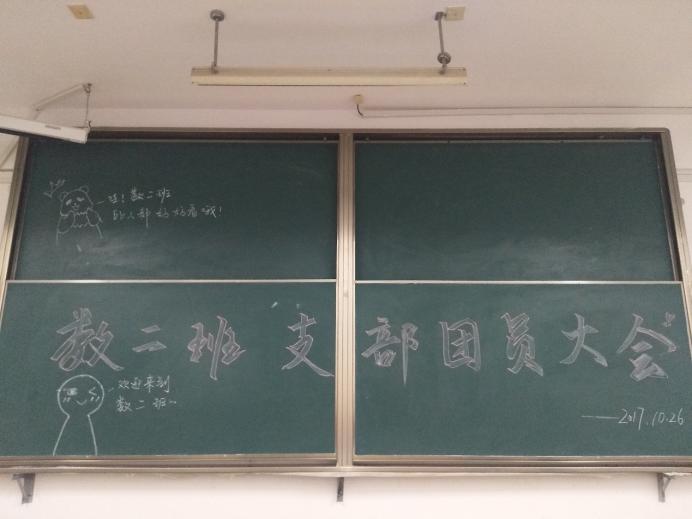 哇！数二班
的人都好好看哦！
数二班支部团员大会
欢迎来到
数二班~
——2017.10.26